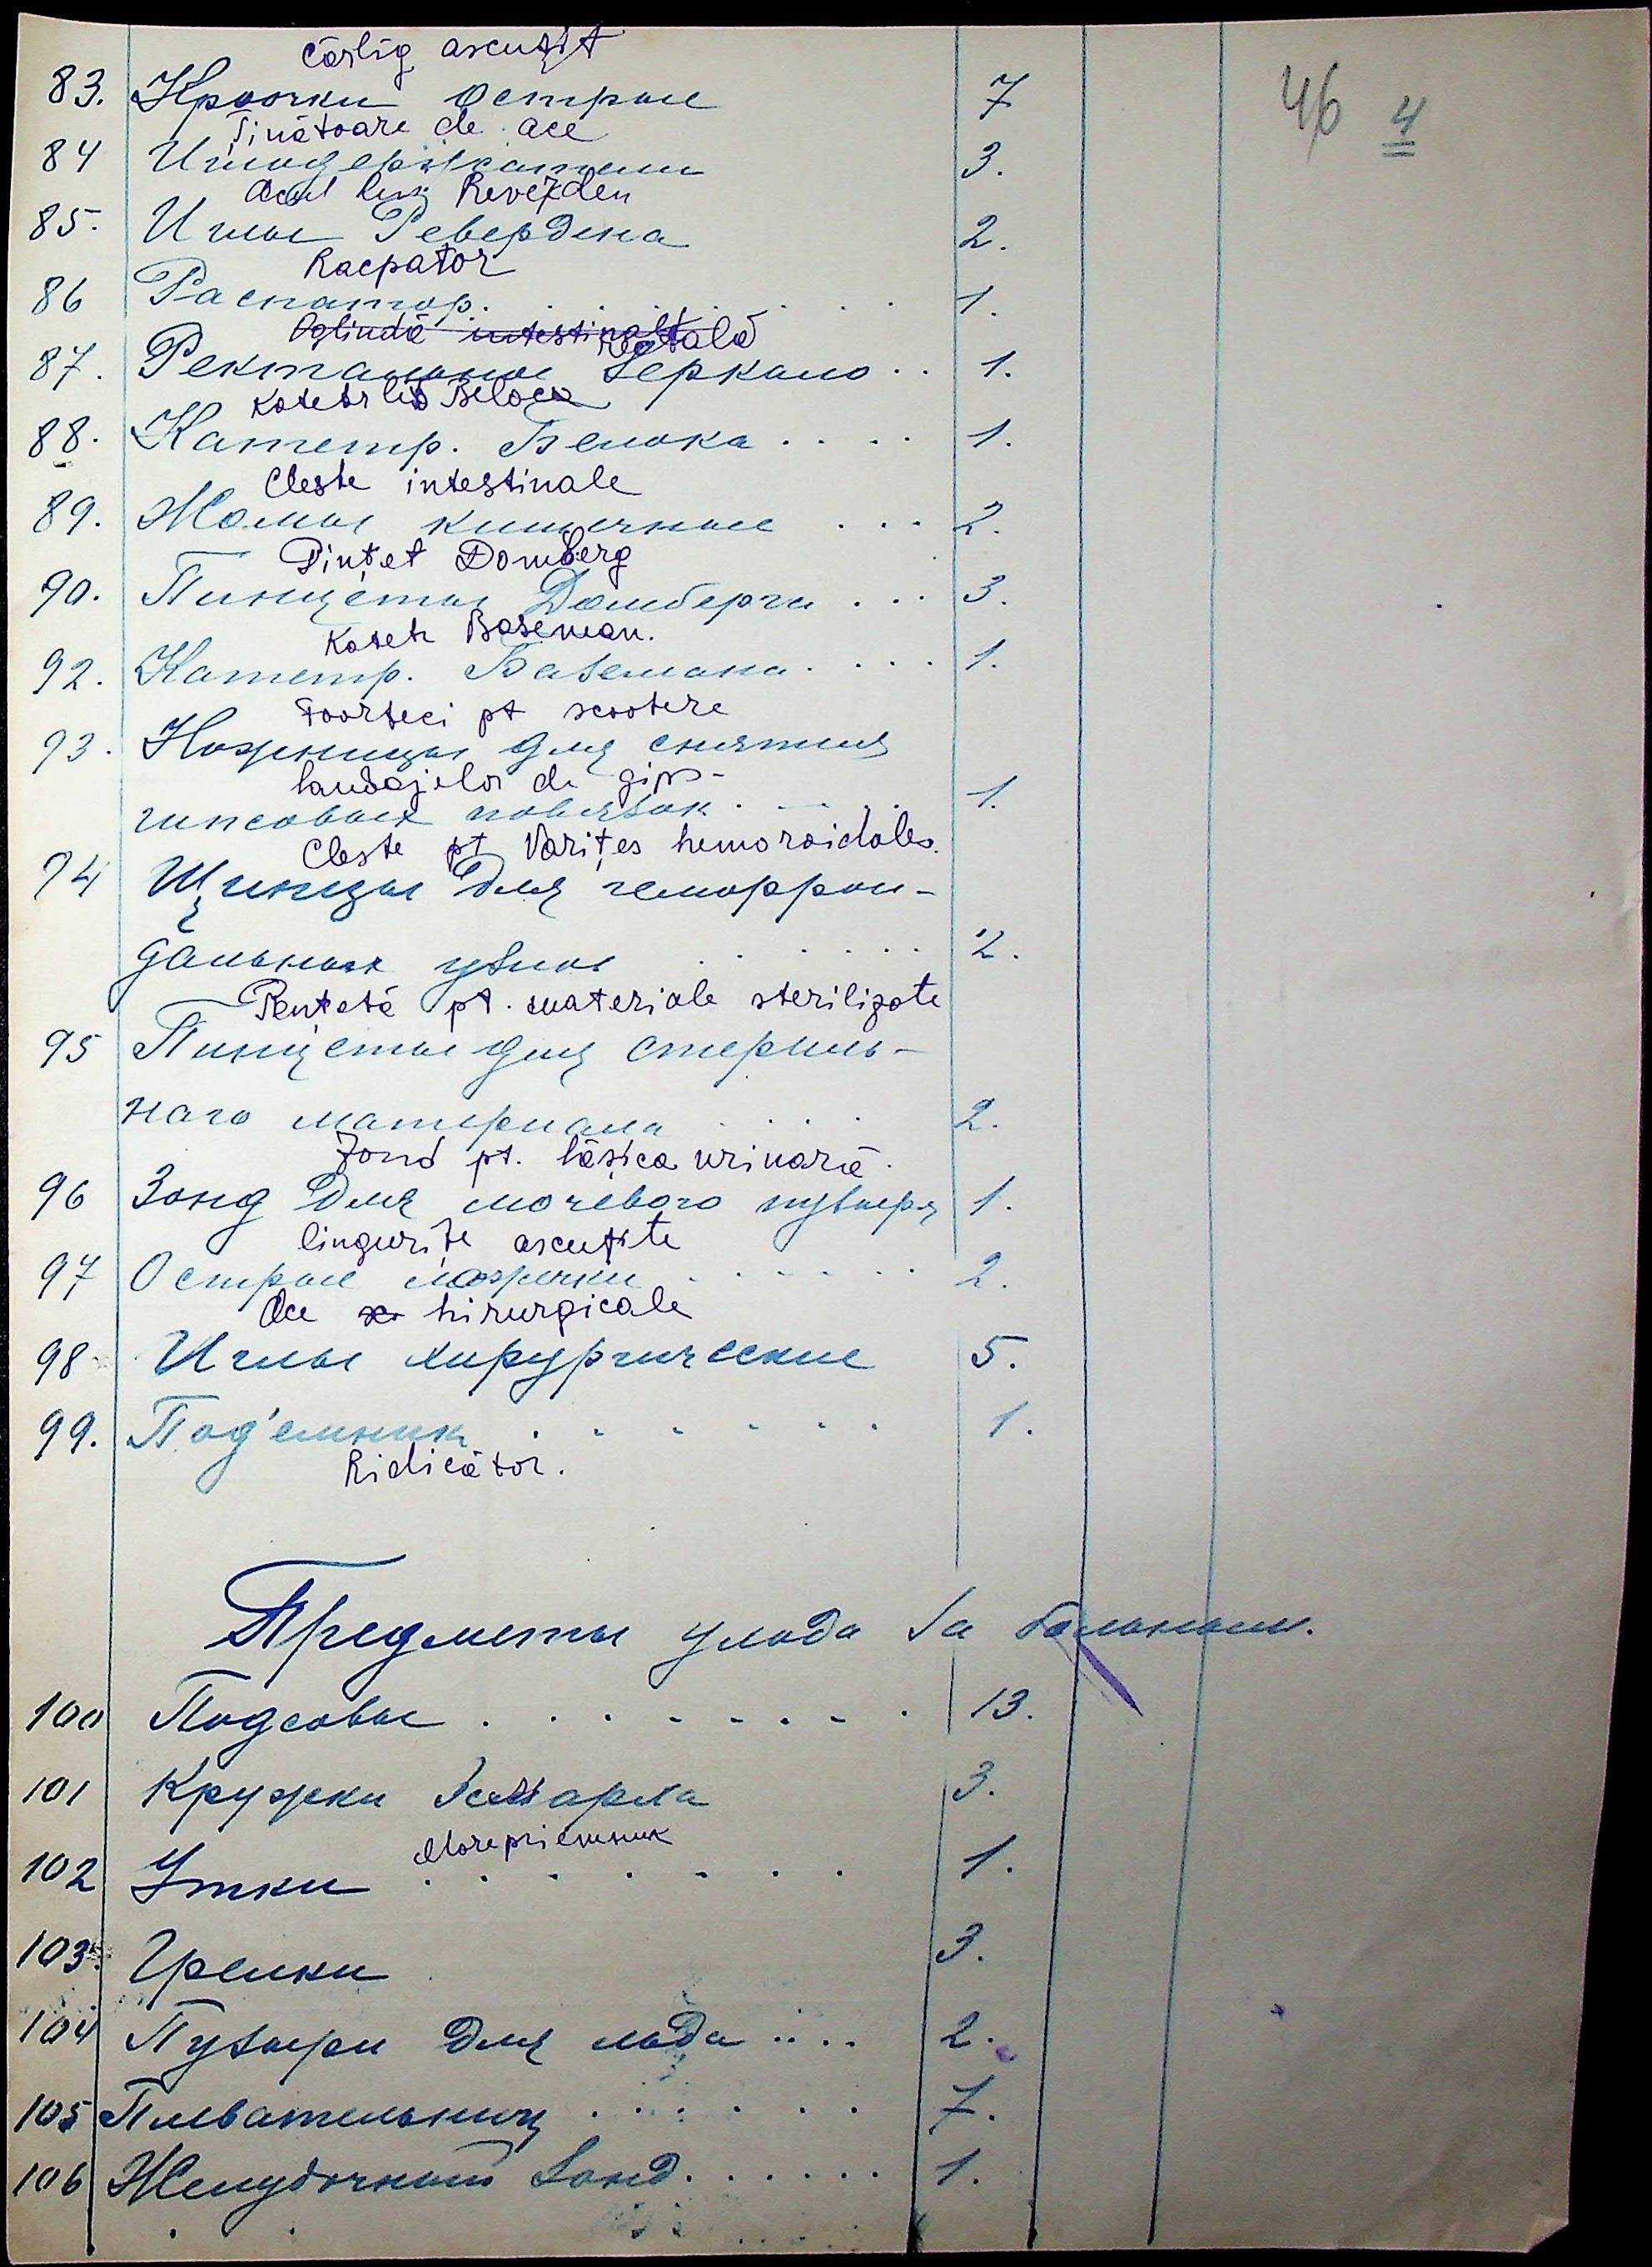 46 4
Cârlig ascuțit
83. Крючки острые 7
Ținătoare de ace
84 Иглодержатели 3.
Acul lui Reverden
85. Иглы Ревердена 2.
Racpator
86 Распатор. . . . . . . 1.
Oglindă intestinală rectală
87. Ректальное зеркало . . 1.
Katetr lui Beloca
88. Катетр. Белока . . . . 1.
Cleste intestinale
89. Жомы кишечные . . . 2.
Pințet Domberg
90. Пинцеты Домберга . . . 3.
Katetr Baseman.
92. Катетр. Баземана . . . . 1.
Foorfeci pt scootere
93. Ножницы для снятия
bandajelor de gips-
гипсовых повязок . — . . 1.
Cleste pt Varițes hemoroidales.
94 Щипцы для геморрои-
дальных узлов . . . . . 2.
Pențetă pt. materiale sterilizate
95 Пинцеты для стериль-
наго материала . . . . 2.
Zond pt. băsica urinară.
96 Зонд для мочевого пузыря 1.
lingurițe ascuțite
97 Острые ложечки . . . . . . 2.
Ace hirurgicale
98 Иглы хирургические 5.
99. Под'емник . . . . . . 1.
Ridicător.
Предметы ухода за больными.
100 Подсовы . . . . . . . . 13.
101 Кружки Эсмарха 3.
Мочеприемник
102 Утки . . . . . . . 1.
103. Грелки 3.
104 Пузыри для льда . . . . 2.
105 Плевательниц . . . . . . 7.
106 Желудочный зонд . . . . . . 1.